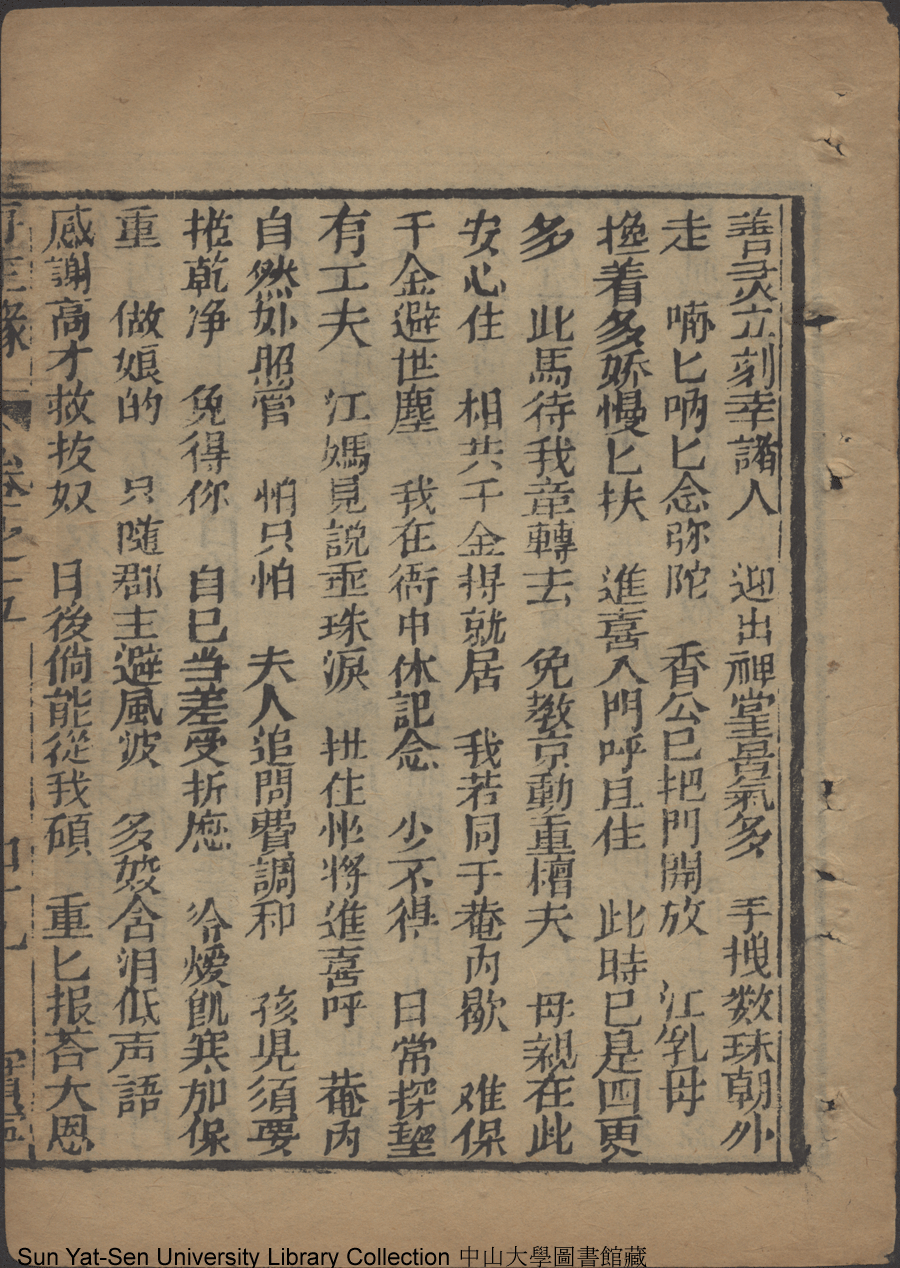 善灵立刻幸諸人 迎出禅堂景氣多 手拽数珠朝外
走 喃匕吶匕念弥陀 香公已把門開放 江乳母
換着多娇慢匕扶 進喜入門呼且住 此時已是四更
多 此馬待我牵轉去 免教京動重檀夫 母親在此
安心住 相共千金得就居 我若同于菴内歇 难保
千金避世塵 我在衙中休記念 少不得 日常探望
有工夫 江媽見説垂珠淚 扯住 將進喜呼 菴内
自然妙照管 怕只怕 夫人追問費調和 孩児須要
推乾净 免得你 自已当差受折磨 冷煖飢寒加保
重 做娘的 只随郡主避風波 多娇含泪低声語
感謝高才救抜奴 日後倘能從我碩 重匕报荅大恩
再生緣 卷之十五
Sun Yat-Sen University Library Collection 中山大學圖書館藏